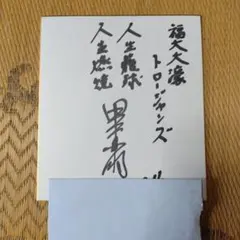 福大大濠
トロージャンズ
人生籠球
人生燃焼